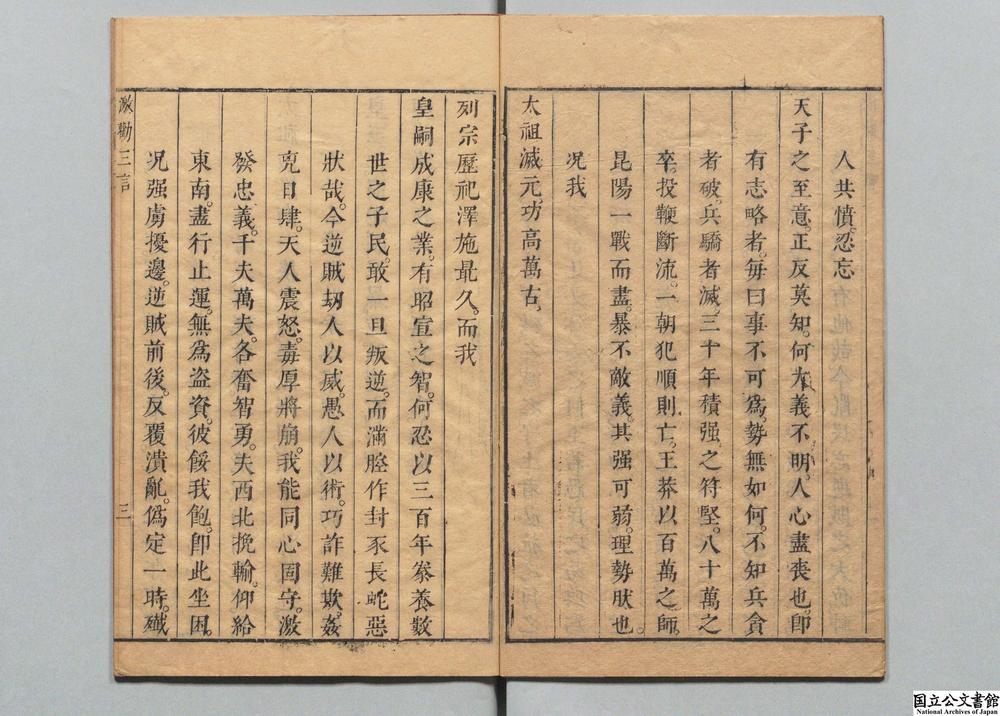 人共憤。忍忘
天子之至意。正反莫知。何大義不明。人心盡喪也。卽
有志略者。每曰事不可爲。勢無如何。不知兵貪
者破。兵驕者滅。三十年積强之符堅。八十萬之
卒。投鞭斷流。一朝犯順則亡。王莽以百萬之師。
昆陽一戰而盡。暴不敵義。其强可弱。理勢狀也。
况我
太祖滅元。功高萬古。
列宗歷祀澤施最久。而我
皇嗣成康之業。有昭宣之智。何忍以三百年豢養數
世之子民。敢一旦叛逆。而滿腔作封豕長蛇惡
狀哉。今逆賊刼人以威。愚人以術。巧詐難欺。姦
兇日肆。天人震怒。毒厚將崩。我能同心固守。激
發忠義。千夫萬夫。各奮智勇。夫西北挽輸。仰給
東南。盡行止運。無爲盜資。彼餒我飽。卽此坐困。
况强虜擾邊。逆賊前後。反覆潰亂。僞定一時。殲
激勸三言
三
国立公文書館
National Archives of Japan